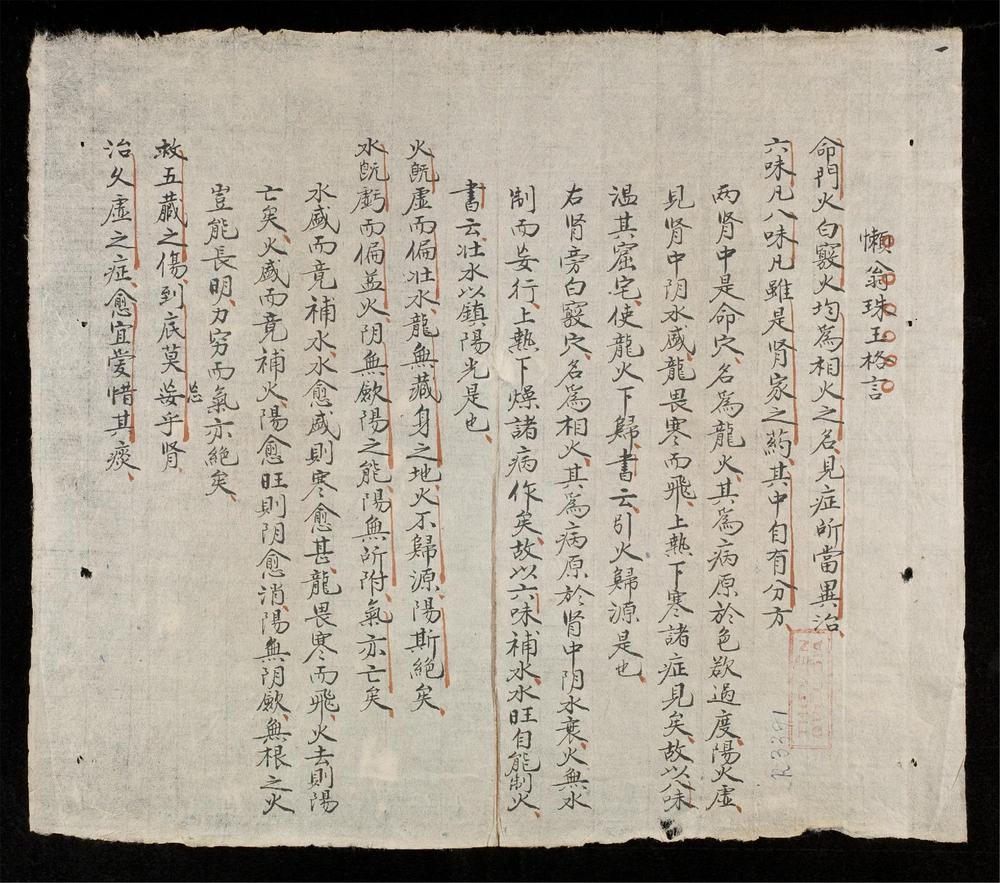 懶翁珠玉格言
命門火白竅火均為相火之名見症所當異治
六味凡八味凡雖是肾家之葯其中自有分方
两肾中是命穴名為龍火其為病原於色欲過度陽火虛
見肾中阴水盛龍畏寒而飛上熱下寒諸症見矣故以八味
温其窟宅使龍火下歸書云引火歸源是也
右肾旁白竅穴名為相火其為病原於肾中阴水衰火無水
制而妄行上熱下燥諸病作矣故以六味補水水旺自能制火
書云壮水以鎮陽光是也
火既虛而偏壮水龍無藏身之地火不歸源陽斯絕矣
水既虧而偏益火阴無歛陽之能陽無所附氣亦亡矣
水盛而竟補水水愈盛則寒愈甚龍畏寒而飛火去則陽
亡矣火盛而竟補火陽愈旺則阴愈消陽無阴歛無根之火
豈能長明力穷而氣亦絕矣
救五藏之傷到底莫妄乎肾
忘
治久虛之症愈宜愛惜其痰
R3291